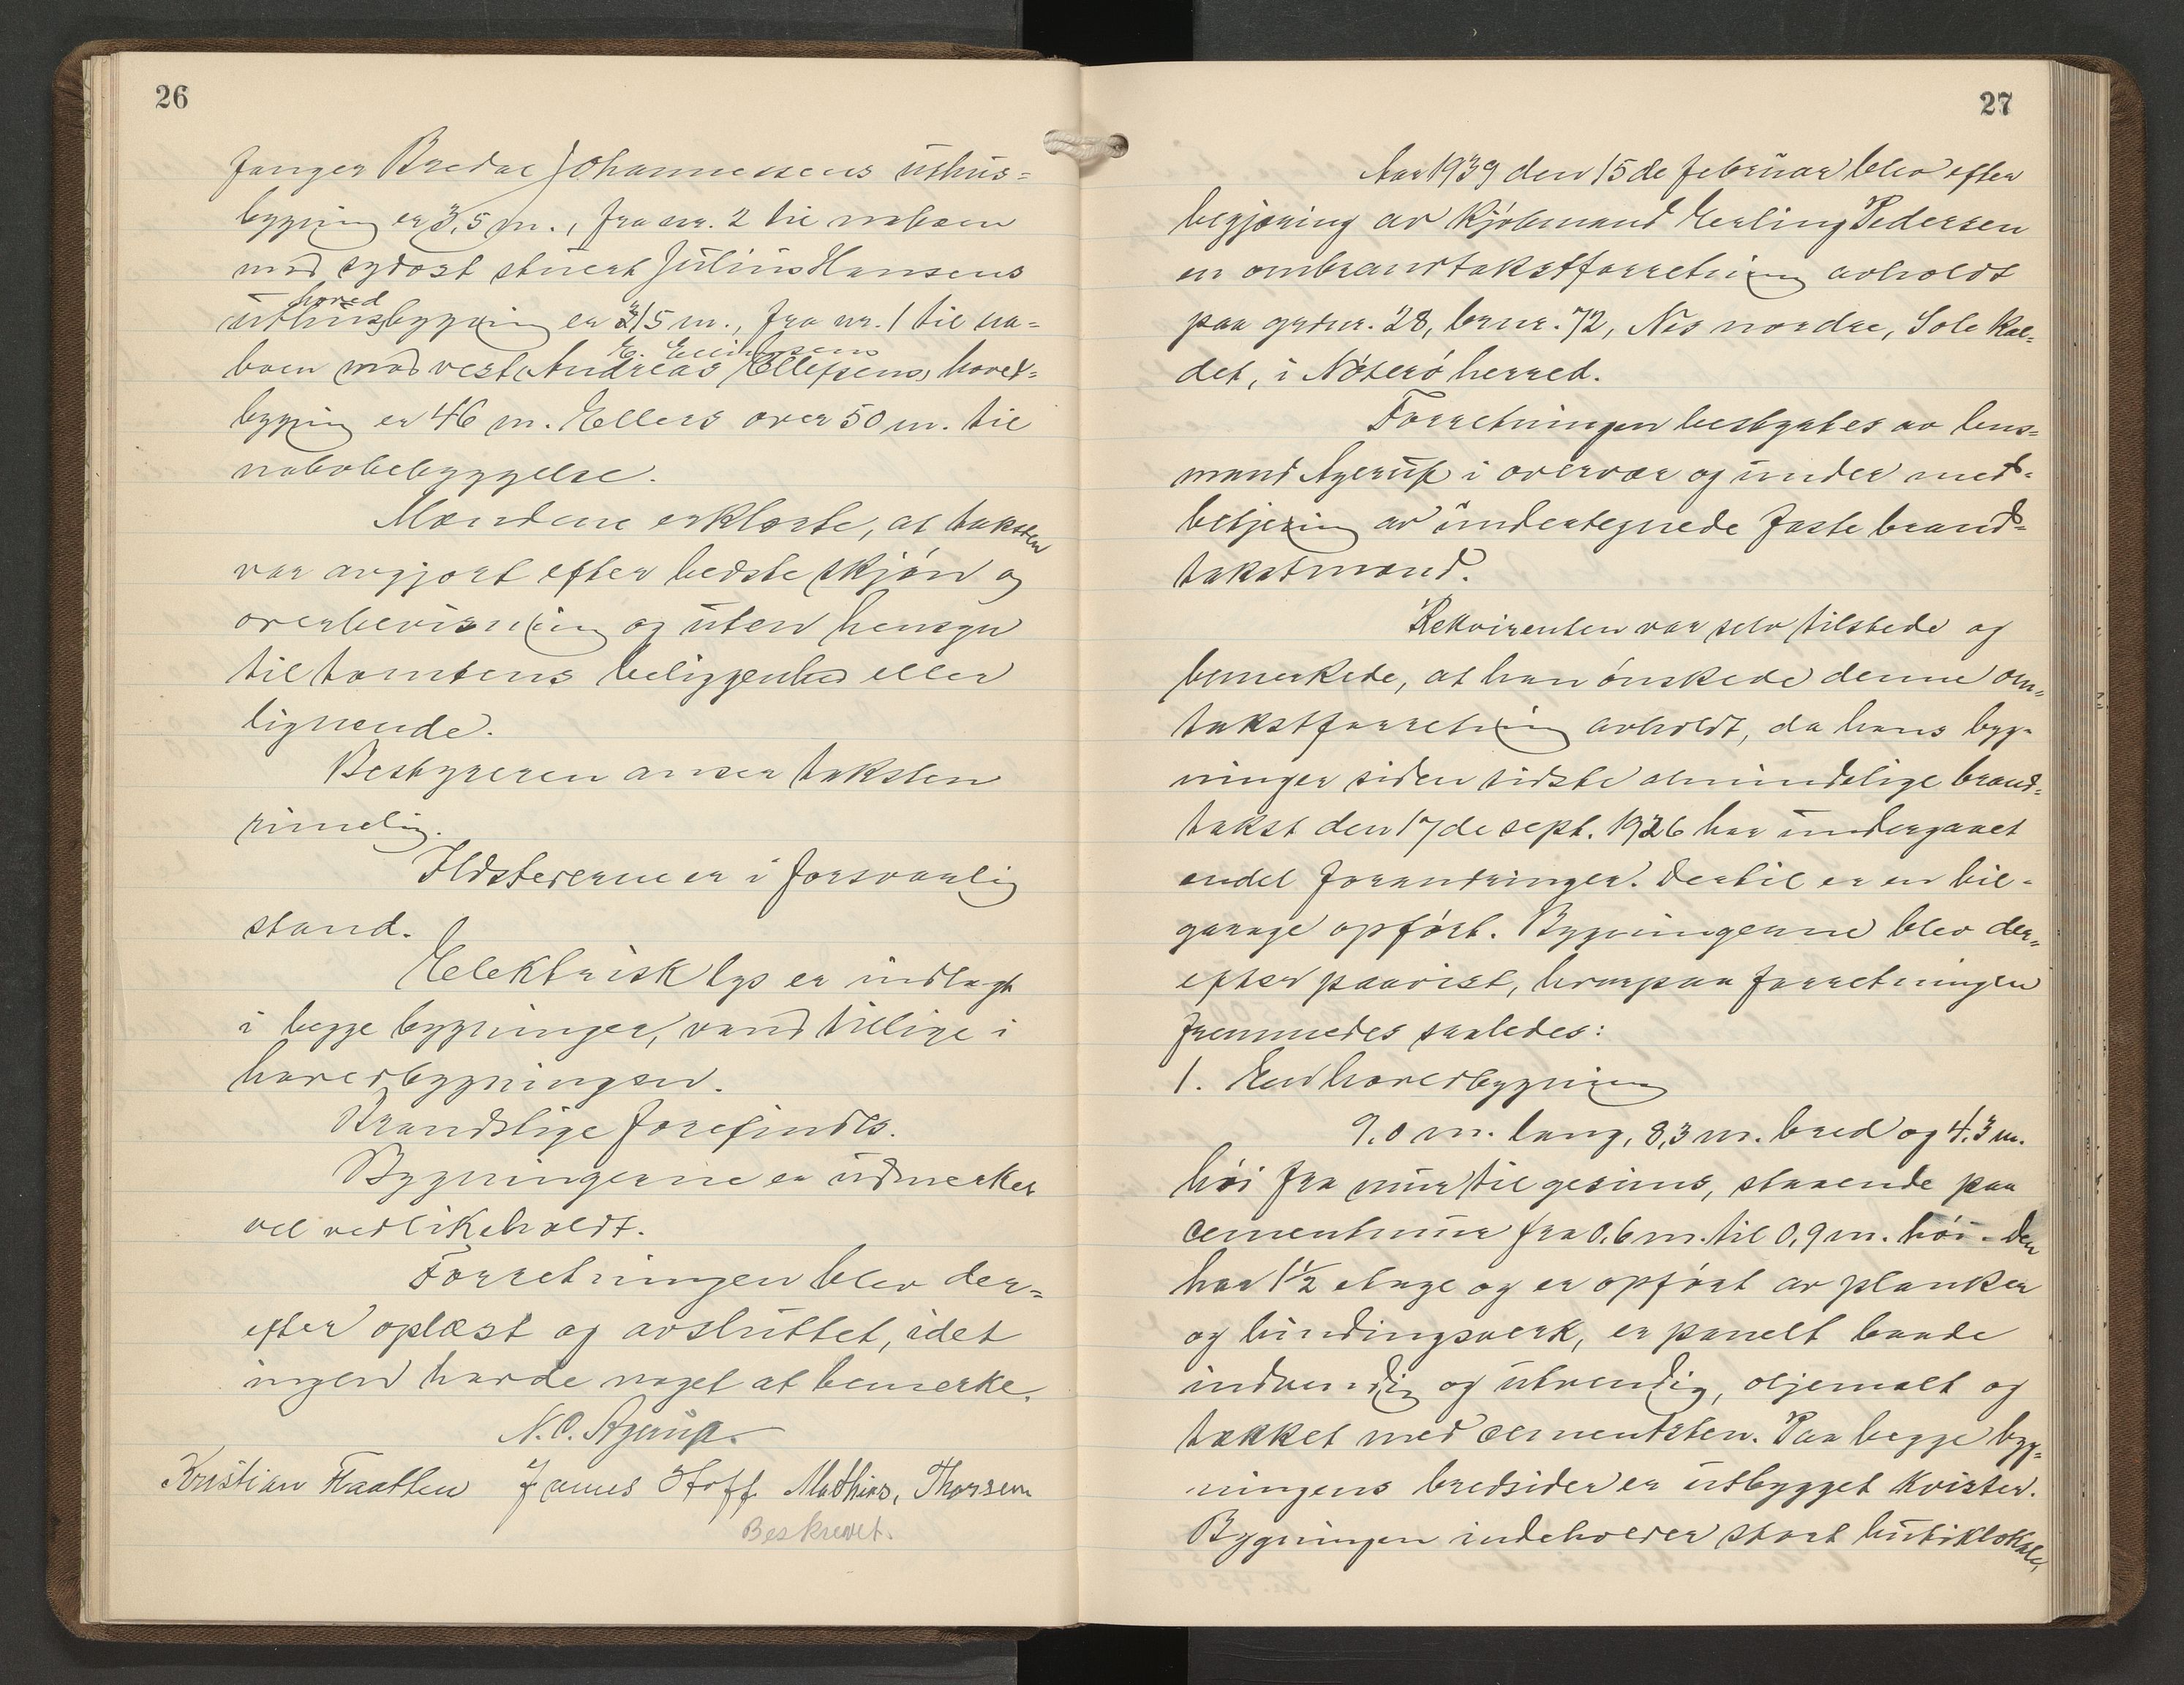 26
fanger Bredae Johannessens uthus=
bygning er 3,5 m., fra nr. 2 til naboen
mod sydost stuert Julius Hansens
hoved
uthusbygning er 315 m., fra nr. 1 til na=
E. Ellefsens
boen mod vest, Andreas Ellefsens, hoved=
bygning er 46 m. Ellers over 50 m. til
nabobebyggelse.
Mændene erklærte, at taksten
var avgjort efter bedste skjøn og
overbevisning og uten hensyn
til tomtens beliggenhed eller
lignende.
Bestyreren anser taksten
rimelig.
Ildstederne er i forsvarlig
stand.
Elektrisk lys er indlagt
i begge bygninger, vand tillige i
hovedbygningen.
Brandstige forefindes.
Bygningerne er udmerket
vel vedlikeholdt.
Forretningen blev der=
efter oplæst og avsluttet, idet
ingen havde noget at bemerke.
N. O. Agerup.
Kristian Haatten James Hoff Mathias, Thorsen
Beskrevet.
27
Aar 1939 den 15de februar blev efter
begjæring av kjøbmand Erling Pedersen
en ombrandtakstforretning avholdt
paa grdnr. 28, brnr. 72, Nes nordre, Sole kal=
det, i Nøterø herred.
Forretningen bestyrtes av lens=
mand Agerup i overvær og under med=
betjening av undertegnede faste brand=
takstmænd.
Rekvirenten var selv tilstede og
bemerkede, at han ønskede denne om=
takstforretning avholdt, da hans byg=
ninger siden sidste almindelige brand=
takst den 17de sept. 1926 har undergaaet
endel forandringer. Dertil er en bil=
garage opført. Bygningerne blev der=
efter paavist, hvorpaa forretningen
fremmedes saaledes:
1. En hovedbygning
9,0 m. lang, 8,3 m. bred og 4,3 m.
høi fra mur til gesims, staaende paa
cementmur fra 0,6 m. til 0,9 m. høi. Den
har 1½ etage og er opført av planker
og bindingsverk, er panelt baade
indvendig og utvendig, oljemalt og
tækket med cementsten. Paa begge byg=
ningens bredsider er utbygget kvister.
Bygningen indeholder stort butiklokale,